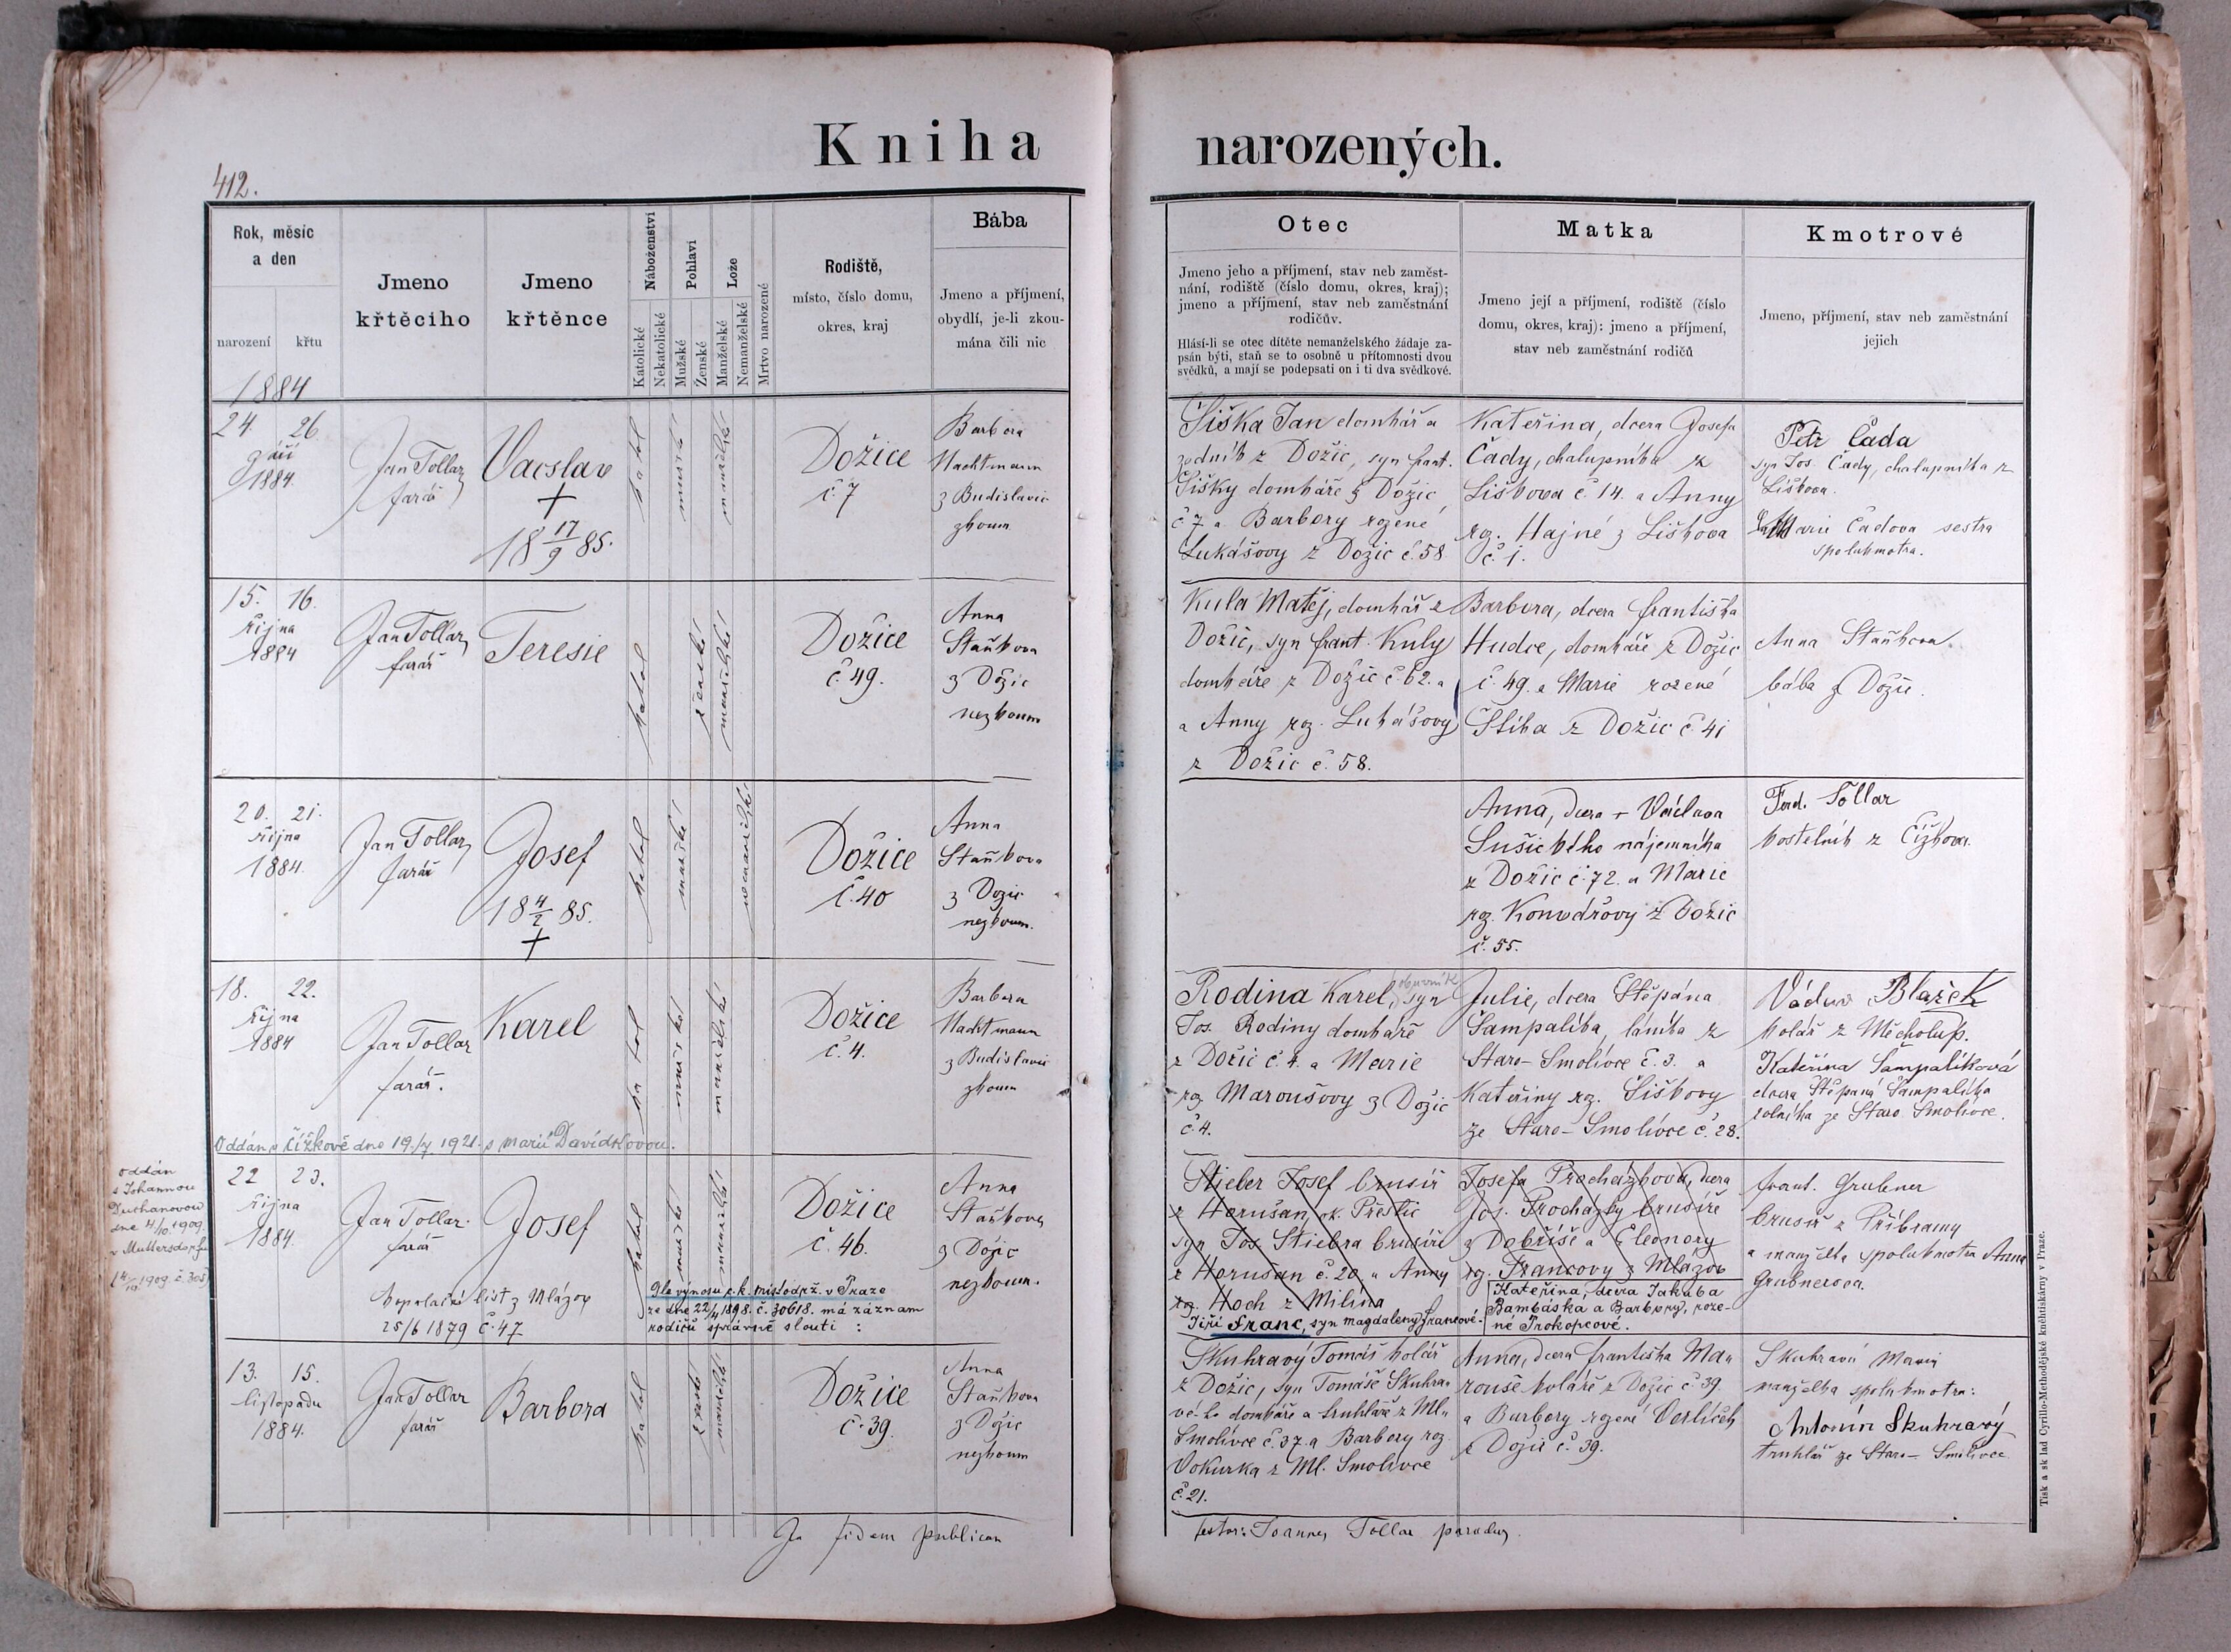 Kniha narozených.
412.
Rok, měsíc
a den
narození
křtu
Jmeno
křtěciho
Jmeno
křtěnce
Náboženství
Katolické
Nekatolické
Pohlaví
Mužské
Ženské
Lože
Manželské
Nemanželské
Mrtvo narozené
Rodiště,
místo, číslo domu,
okres, kraj
Bába
Jmeno a příjmení,
obydlí, je-li zkou-
mána čili nic
Otec
Jmeno jeho a příjmení, stav neb zaměst-
nání, rodiště (číslo domu, okres, kraj);
jmeno a příjmení, stav neb zaměstnání
rodičův.
Hlásí-li se otec dítěte nemanželského žádaje za-
psán býti, staň se to osobně u přítomnosti dvou
svědků, a mají se podepsati on i ti dva svědkové.
Matka
Jmeno její a příjmení, rodiště (číslo
domu, okres, kraj): jmeno a příjmení,
stav neb zaměstnání rodičů
Kmotrové
Jmeno, příjmení, stav neb zaměstnání
jejich
1884
24. 26.
září
1884.
Jan Tollar
farář
Vacslav
+
18 17/9 85.
katol
mužské
manželské
Dožice
č. 7
Barbora
Nachtmann
z Budislavic
zkoum
Šiška Jan domkář a
zedník z Dožic, syn frant.
Šišky domkáře z Dožic
č. 7 a Barbory rozené
Lukášovy z Dožic č. 58
Kateřina, dcera Josefa
Čady, chalupníka z
Liškova č. 14. a Anny
roz. Hajné z Liškova
č. 1.
Petr Čada
syn Jos. Čady, chalupníka z
Liškova.
Marie Čadova sestra
spolukmotra.
15. 16.
října
1884
Jan Tollar
farář
Teresie
katol
ženské
manželské
Dožice
č. 49.
Anna
Staňkova
z Dožic
nezkoum
Kula Matěj, domkář z
Dožic, syn frant. Kuly
domkáře z Dožic č. 62. a
a Anny roz. Lukášovy
z Dožic č. 58.
Barbora, dcera františka
Hudce, domkáře z Dožic
č. 49. a Marie rozené
Slíka z Dožic č. 41
Anna Staňkova.
bába z Dožic.
20. 21.
října
1884.
Jan Tollar
farář
Josef
18 4/2 85.
+
katol
mužské
nemanželské
Dožice
č. 40
Anna
Staňkova
z Dožic
nezkoum.
Anna, dcera + Václava
Sušického nájemníka
z Dožic č. 72. a Marie
roz. Konvdřovy z Dožic
č. 55.
Ferd. Tollar
kostelník z Čížkova.
18. 22.
října
1884
Jan Tollar
farář.
Karel
katol
mužské
manželské
Dožice
č. 4.
Barbora
Nachtmann
z Budislavic
zkoum
Rodina Karel, obuvník syn
Jos. Rodiny domkáře
z Dožic č. 4. a Marie
roz Maroušovy z Dožic
č. 4.
Julie, dcera Štěpána
Šampalíka, láníka z
Staro-Smolivce č. 3. a
Kateřiny roz. Šiškovy
ze Staro-Smolivce č. 28.
Václav Blažek
kolář z Měcholup.
Kateřina Šampalíková
dcera Štěpana Šampalíka
rolníka ze Staro Smolivce.
Oddán v Čížkově dne 19./7 1921. s Marií Davídkovou.
oddán
s Johannou
Duchanovou
dne 4/10. 1909.
v Muttersdorfu
22 23.
října
1884.
Jan Tollar.
farář
Josef
katol
mužské
manželské
Dožice
č. 46.
Anna
Staňkova
z Dožic
nezkoum.
Kopolační list z Mlázov
25/6 1879 č. 47
Dle výnosu c. k. místodrž. v Praze
ze dne 22/4 1898. č. 30618. má záznam
rodičů správně slouti :
Stieber Josef brusíř
z Horušan, ok. Přestic
syn Jos. Stiebra brusíře
z Horušan č. 20. a Anny
roz. Hoch z Milína
Jiří Franc, syn Magdaleny Francové.
Josefa Procházkova, dcera
Jos. Procházky brusíře
z Dobříše a Eleonory
rg. Francovy z Mlázov
Kateřina, dcera Jakuba
Bambáska a Barbory, roze-
né Prokopcové.
frant. Grubner
brusíř z Příbramy
a manželka spolukmotra Anna
Grubnerova.
13. 15.
listopadu
1884.
Jan Tollar
farář
Barbora
katol
ženské
manželské
Dožice
č. 39.
Anna
Staňkova
z Dožic
nezkoum
Skuhravý Tomáš kolář
z Dožic, syn Tomáše Skuhra-
vého domkáře a truhláře z Ml.
Smolivce č. 37. a Barbory roz.
Vokurka z Ml. Smolivce
č. 21.
Anna, dcera františka Ma-
rouše koláře z Dožic č. 39
a Barbory rozené Verlíček
z Dožic č. 39.
Skuhravá Marie
manželka spolukmotra:
Antonín Skuhravý
truhlář ze Staro-Smolivce
In fidem publicam
testor: Joannes Tollar parochus.
Tisk a sklad Cyrillo-Methodějské kněhtiskárny v Praze.